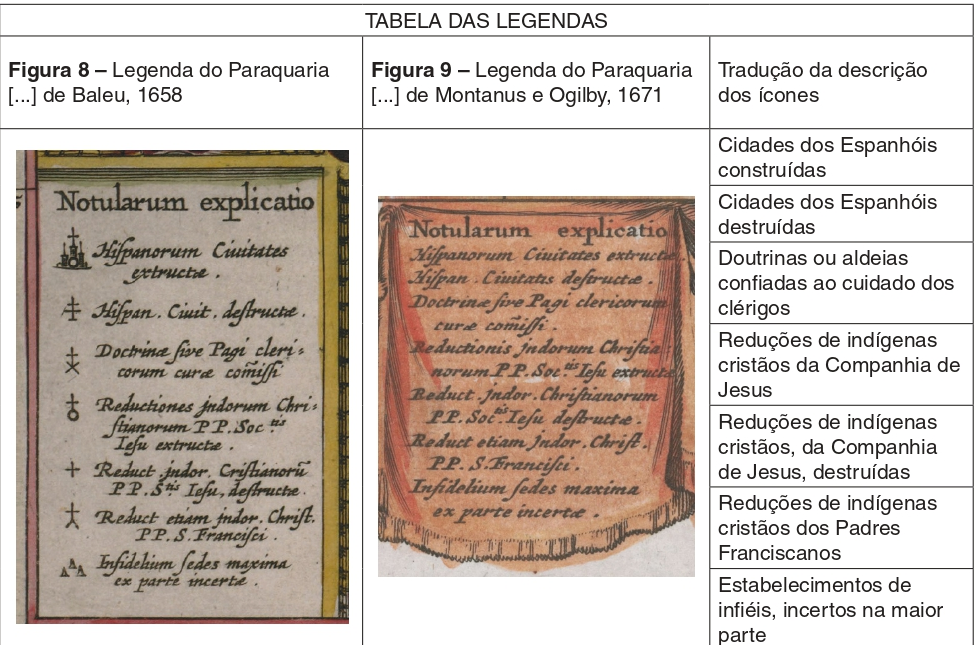 TABELA DAS LEGENDAS
Figura 8 – Legenda do Paraquaria
[...] de Baleu, 1658
Figura 9 – Legenda do Paraquaria
[...] de Montanus e Ogilby, 1671
Tradução da descrição
dos ícones
Notularum explicatio
Hiſpanorum Ciuitates
extructæ .
Hiſpan . Ciuit . deſtructæ .
Doctrinæ ſive Pagi cleri-
corum curæ com̃iſſi
Reductiones jndorum Chri-
ſtianorum P P . Soc .tis
Ieſu extructæ .
Reduct . jndor . Criſtianorũ
P P . Stis Ieſu, deſtructæ .
Reduct etiam jndor . Chriſt.
P P . S . Franciſci .
Infidelium ſedes maxima
ex parte incertæ .
Notularum explicatio
Hiſpanorum Ciuitates extructæ .
Hiſpan . Ciuitatis deſtructæ .
Doctrinæ ſive Pagi clericorum
curæ com̃iſſi .
Reductionis jndorum Chriſtia
norum P . P . Soc .tis Ieſu extructæ
Reduct . jndor . Chriſtianorum
P P . Soc .tis Ieſu deſtructæ .
Reduct etiam jndor . Chriſt .
P P . S . Franciſci .
Infidelium ſedes maxima
ex parte incertæ .
Cidades dos Espanhóis
construídas
Cidades dos Espanhóis
destruídas
Doutrinas ou aldeias
confiadas ao cuidado dos
clérigos
Reduções de indígenas
cristãos da Companhia de
Jesus
Reduções de indígenas
cristãos, da Companhia
de Jesus, destruídas
Reduções de indígenas
cristãos dos Padres
Franciscanos
Estabelecimentos de
infiéis, incertos na maior
parte